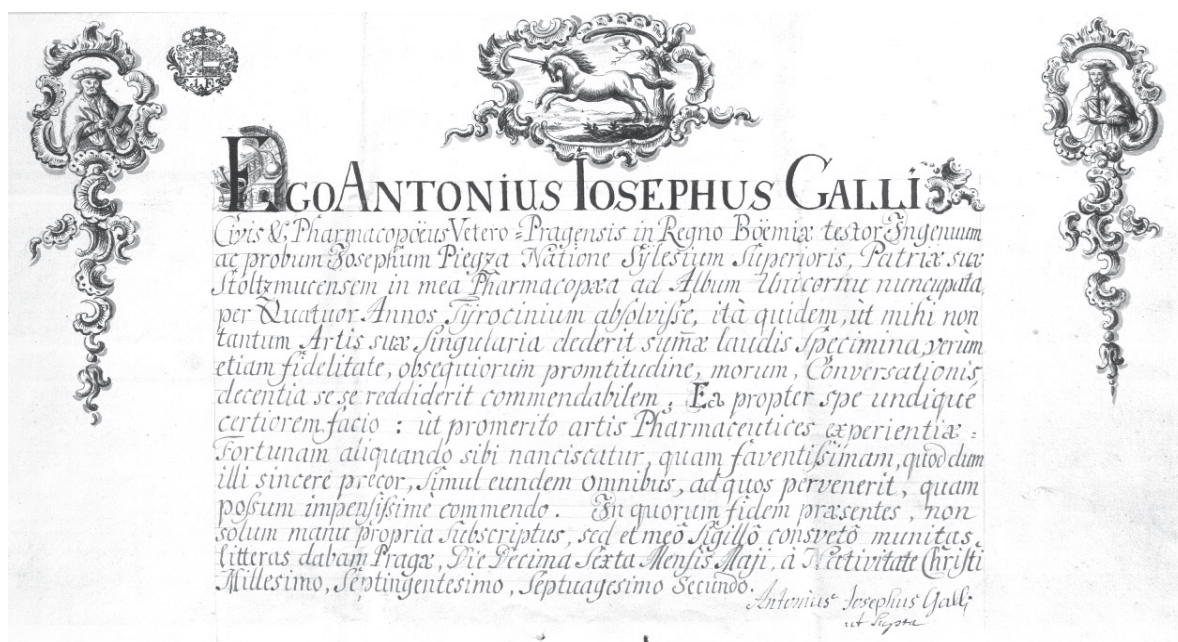 EGO ANTONIUS IOSEPHUS GALLI
Civis & Pharmacopœus Vetero=Pragensis in Regno Böemiæ testor Ingenuum
ac probum Josephum Piegza Natione Sylesium Superioris, Patriæ suæ
Stoltzmucensem in mea Pharmacopæa ad Album Unicornu nuncupata,
per Quatuor Annos Tyrocinium absolvisse, ità quidem, ùt mihi non
tantum Artis suæ Singularia dederit sum̄æ laudis Specimina, verùm
etiam fidelitate, obsequiorum promtitudine, morum, Conversationis
decentia se se reddiderit commendabilem, Ea propter spe undiquè
certiorem facio : ùt promerito artis Pharmaceutices experientiæ =
Fortunam aliquando sibi nanciscatur, quam faventissimam, quod dum
illi sincere precor, Simul eundem omnibus, ad quos pervenerit, quam
possum impensissimè commendo. In quorum fidem præsentes, non
solum manu propria subscriptus, sed et meô Sigillô consvetô munitas
litteras dabam Pragæ, Die Decima Sexta Mensis Maji, à Nativitate Christi
Millesimo, Septingentesimo, Septuagesimo Secundo.
Antonius Josephus Galli
ut supra